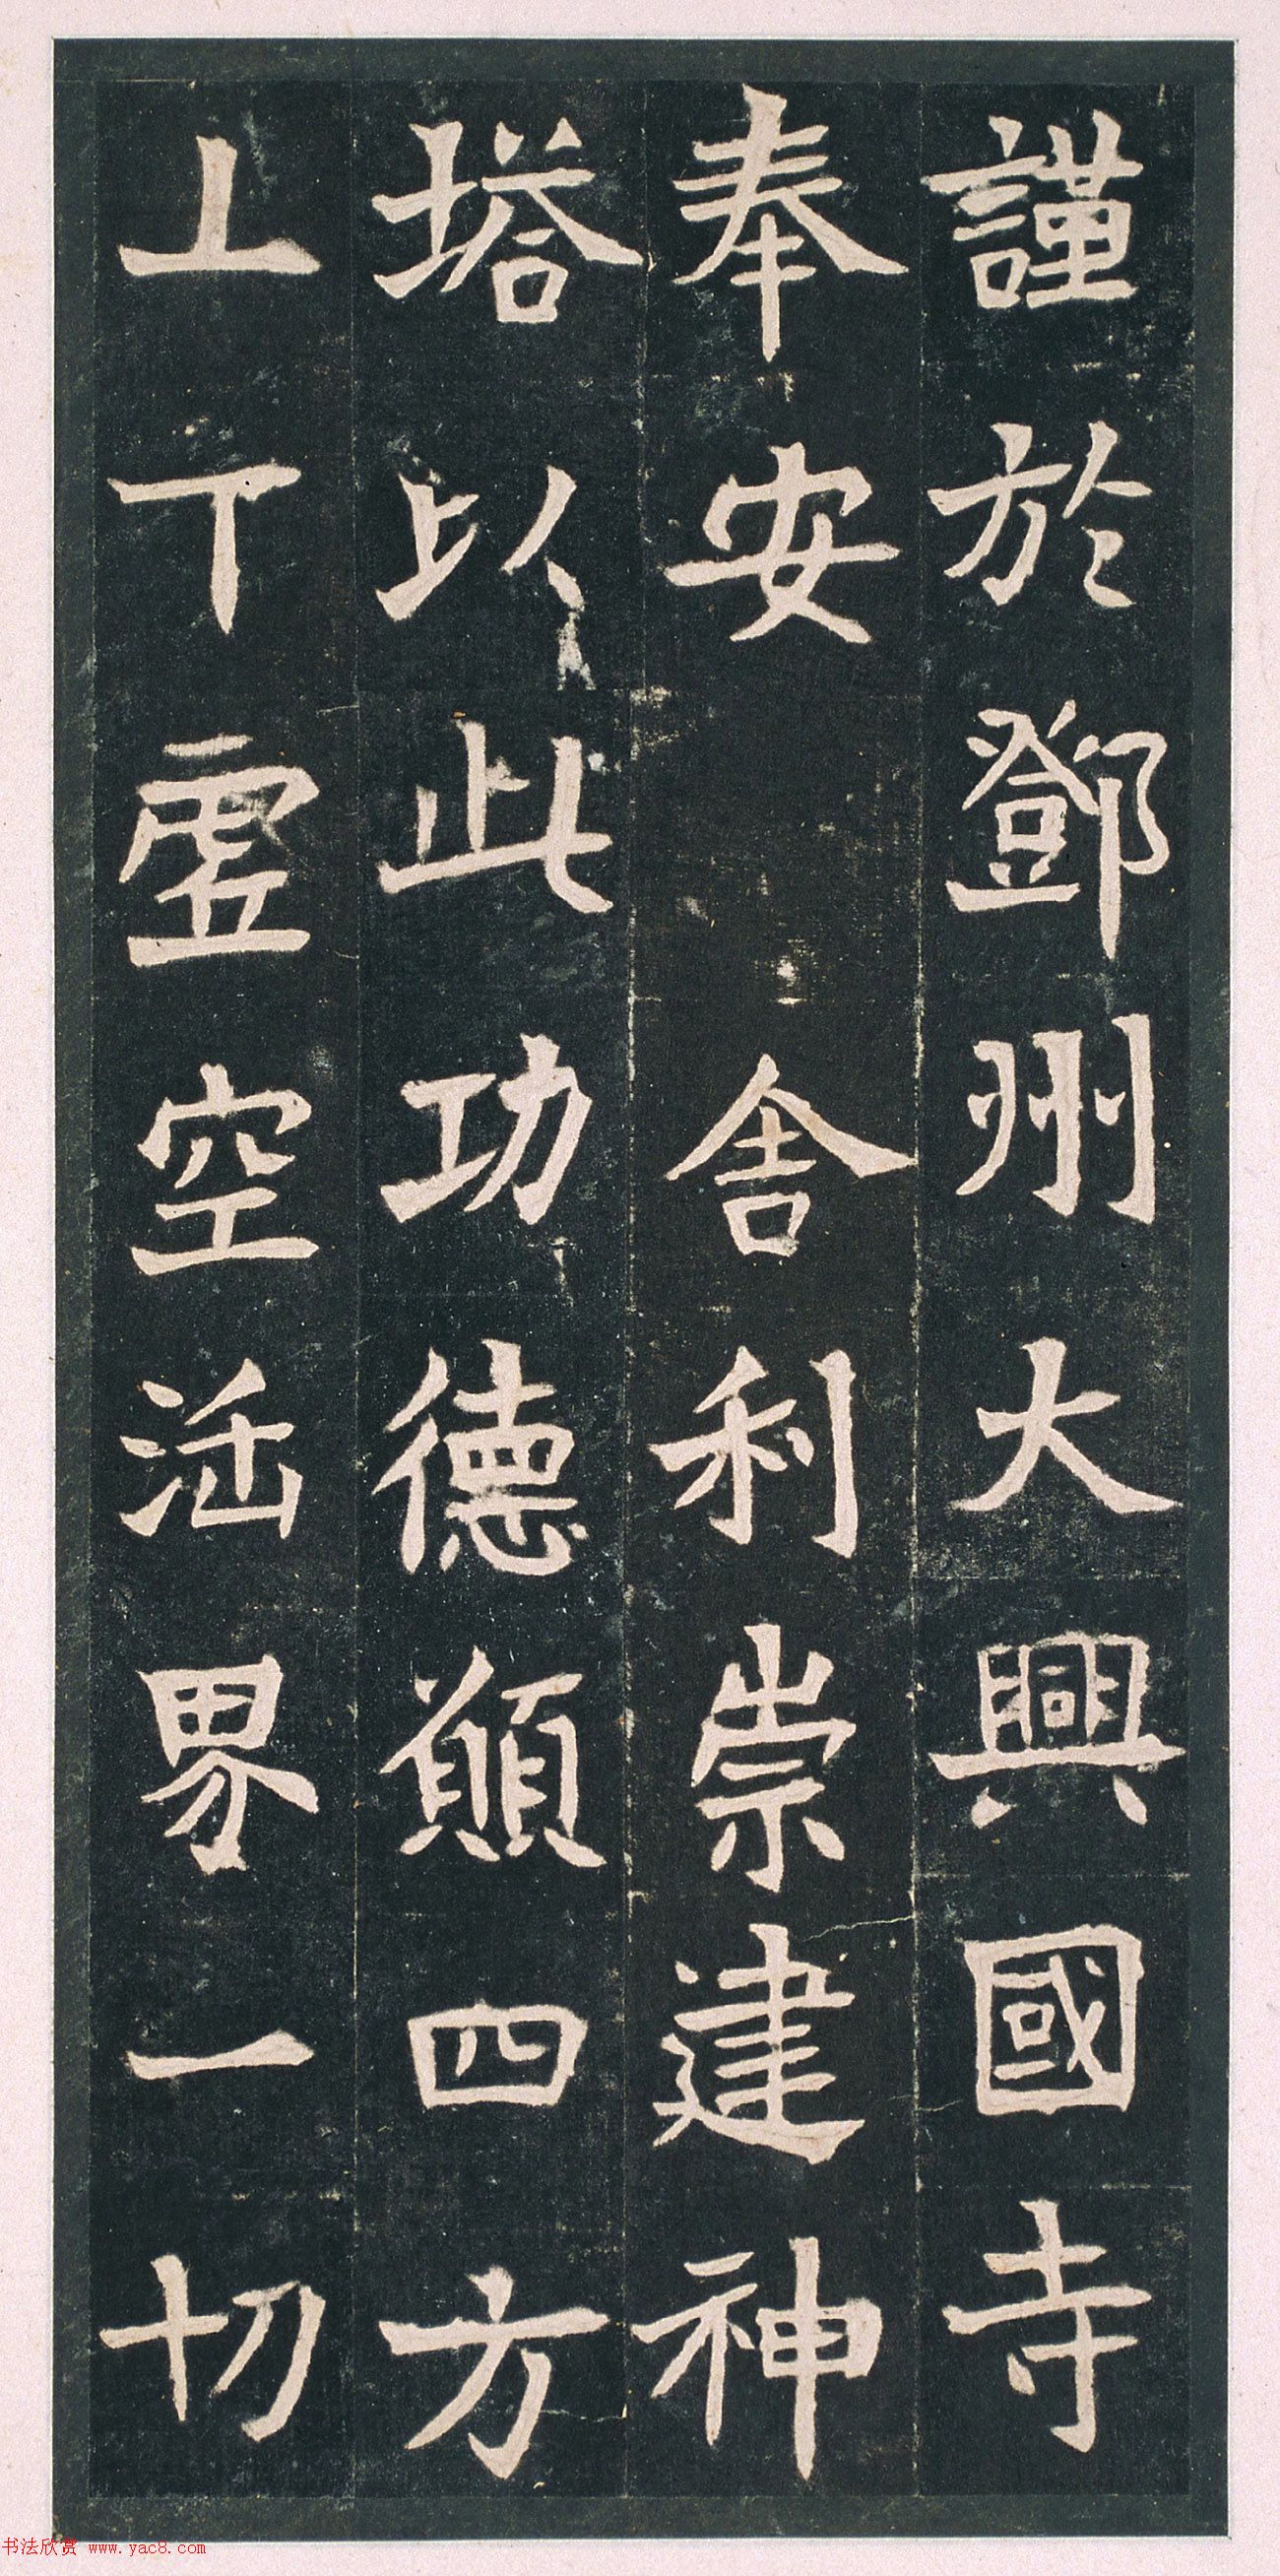 謹於鄧州大興國寺
奉安 舍利崇建神
塔以此功德願四方
上下虛空法界一切
书法欣赏 www.yac8.com